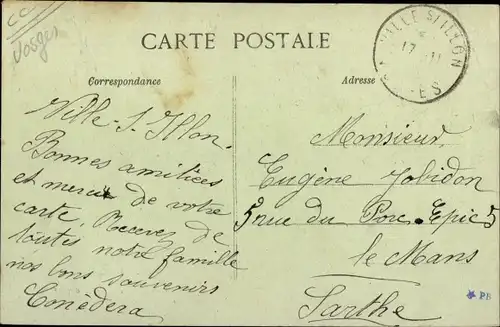 CC
Vosges
CARTE POSTALE
VILLE S/ ILLON
17 - 11
ES
Correspondance
Adresse
Ville-s-Illon.
Bonnes amitiées
et merci de votre
carte, Recevez de
toutes notre famille
nos bons souvenirs
Monsieur
Eugène Jobidon
5 rue du Porc-Epic 5
le Mans
Sarthe
PB